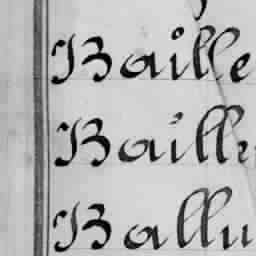 Baille
Baill
Ballu